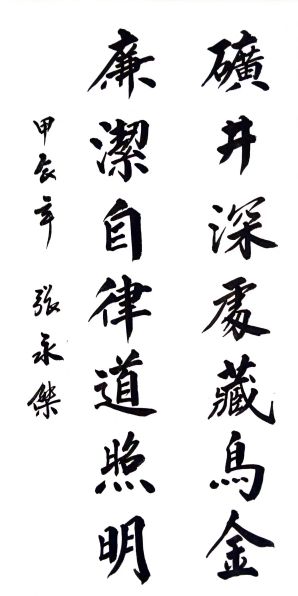 礦井深處藏鳥金
廉潔自律道照明
甲辰年 張永傑